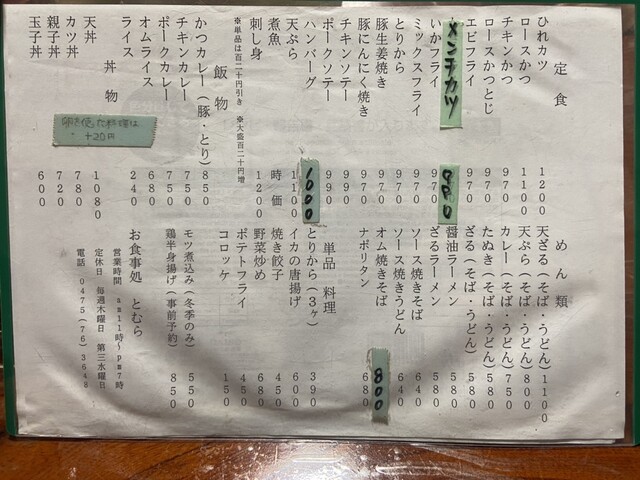 定食
ひれカツ 1200
ロースかつ 1100
チキンかつ 970
ロースかつとじ 970
エビフライ 970
メンチカツ 990
いかフライ 970
ミックスフライ 970
とりから 970
豚生姜焼き 970
豚にんにく焼き 970
チキンソテー 990
ポークソテー 990
ハンバーグ 1000
天ぷら 1100
煮魚 時価
刺し身 1200
※単品は百二十円引き ※大盛百二十円増
飯物
かつカレー(豚・とり) 850
チキンカレー 750
ポークカレー 750
オムライス 680
ライス 240
丼物
天丼 1080
カツ丼 780
親子丼 720
玉子丼 600
卵を使った料理は
+20円
めん類
天ざる(そば・うどん) 1100
天ぷら(そば・うどん) 800
カレー(そば・うどん) 750
たぬき(そば・うどん) 580
ざる(そば・うどん) 580
醤油ラーメン 580
ざるラーメン 580
ソース焼きそば 640
ソース焼きうどん 640
オム焼きそば 800
ナポリタン 680
単品 料理
とりから(3ヶ) 390
イカの唐揚げ 600
焼き餃子 450
野菜炒め 680
ポテトフライ 450
コロッケ 150
モツ煮込み(冬季のみ) 550
鶏半身揚げ(事前予約) 850
お食事処 とむら
営業時間 am11時~pm7時
定休日 毎週木曜日 第三水曜日
電話 0475(76)3648